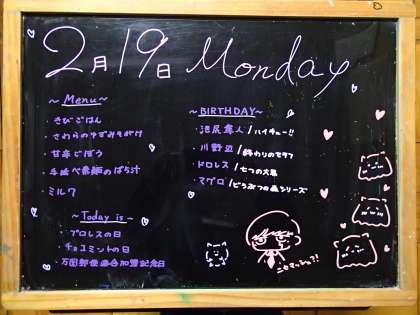 2月19日 Monday
~Menu~
・きびごはん
・さわらのゆずみそがけ
・甘辛ごぼう
・手延べ素麺のばち汁
・ミルク
~Today is~
・プロレスの日
・チョコミントの日
・万国郵便連合加盟記念日
~BIRTHDAY~
・沼尻隼人/ハイキュー!!
・川野辺/終わりのセラフ
・ドロレス/七つの大罪
・マグロ/どうぶつの森シリーズ
ニセマッシュ?!